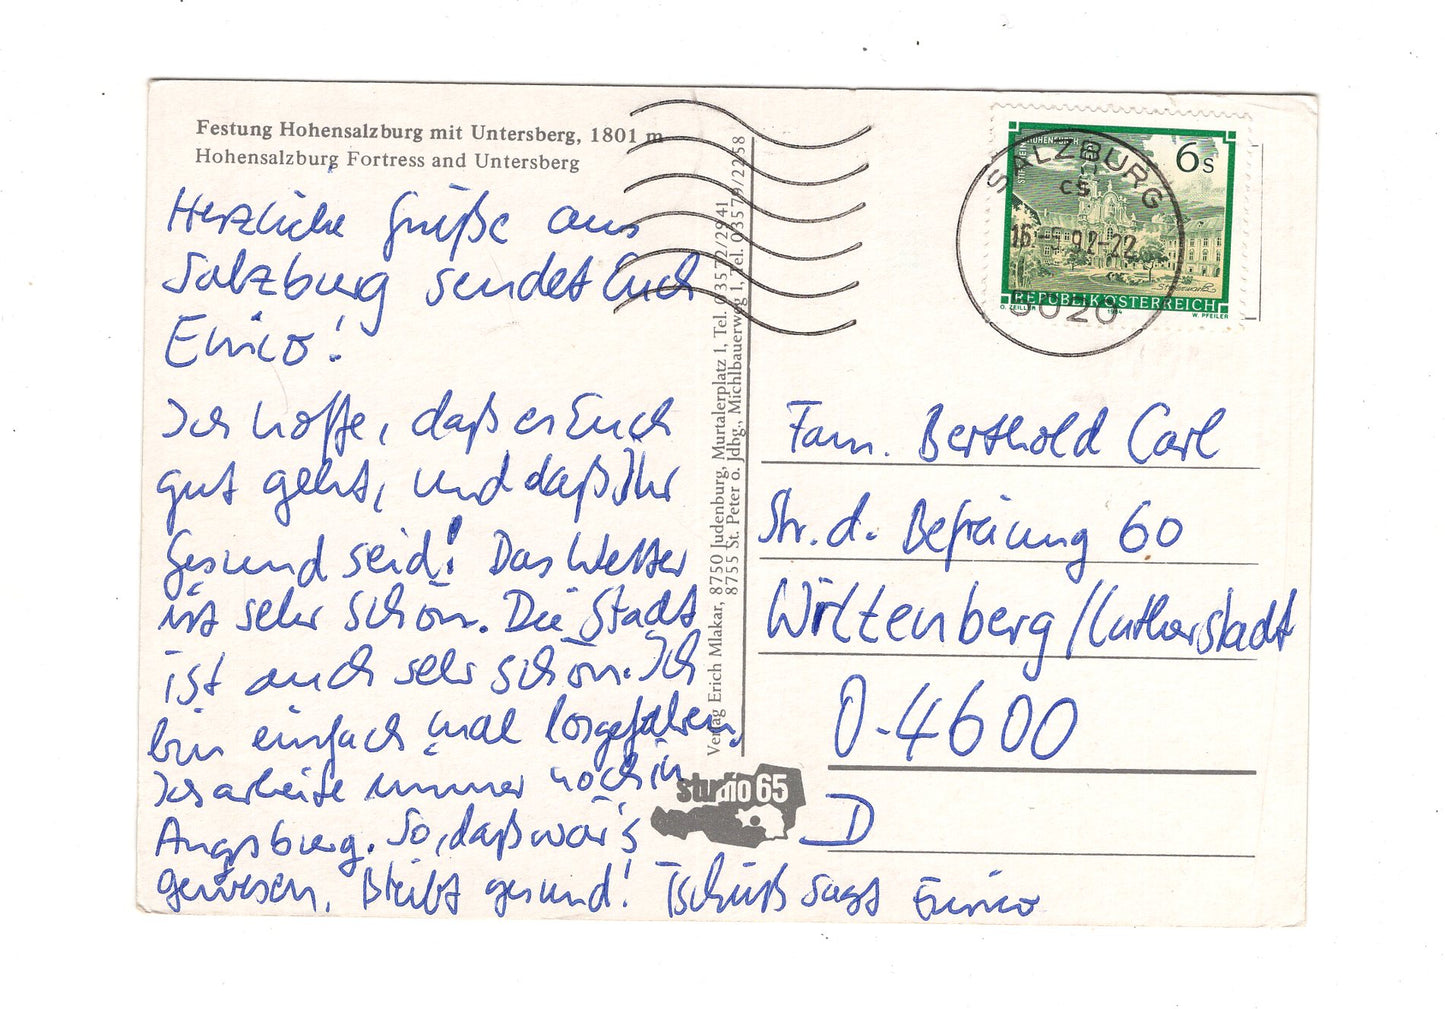 Festung Hohensalzburg mit Untersberg, 1801 m
Hohensalzburg Fortress and Untersberg
Herzliche Grüße aus
Salzburg sendet Euch
Enrico!
Ich hoffe, daß es Euch
gut geht, und daß Ihr
gesund seid! Das Wetter
ist sehr schön. Die Stadt
ist auch sehr schön. Ich
bin einfach mal losgefahren,
Ich arbeite immer noch in
Augsburg. So, daß wär's
gewesen. Bleibt gesund! Tschüß sagt Enrico
Verlag Erich Mlakar, 8750 Judenburg, Murtalerplatz 1, Tel. 03572/2941
8755 St. Peter o. Jdbg., Michlbauerweg 1, Tel. 03579/2258
studio 65
SALZBURG
CS
16.-5.92-22
5020
STIFT REIN-HOHENFURTH
6 S
REPUBLIK ÖSTERREICH
O. ZEILLER 1984 W. PFEILER
Fam. Berthold Carl
Str. d. Befreiung 60
Wittenberg/Lutherstadt
O-4600
D